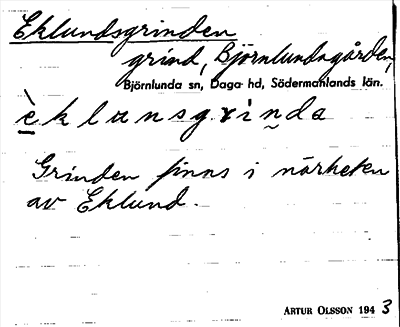 Eklundsgrinden
grind, Björnlundagården,
Björnlunda sn, Daga hd, Södermanlands län.
è̱ k l u n s g r ì n̰ d a
Grinden finns i närheten
av Eklund.
ARTUR OLSSON 1943